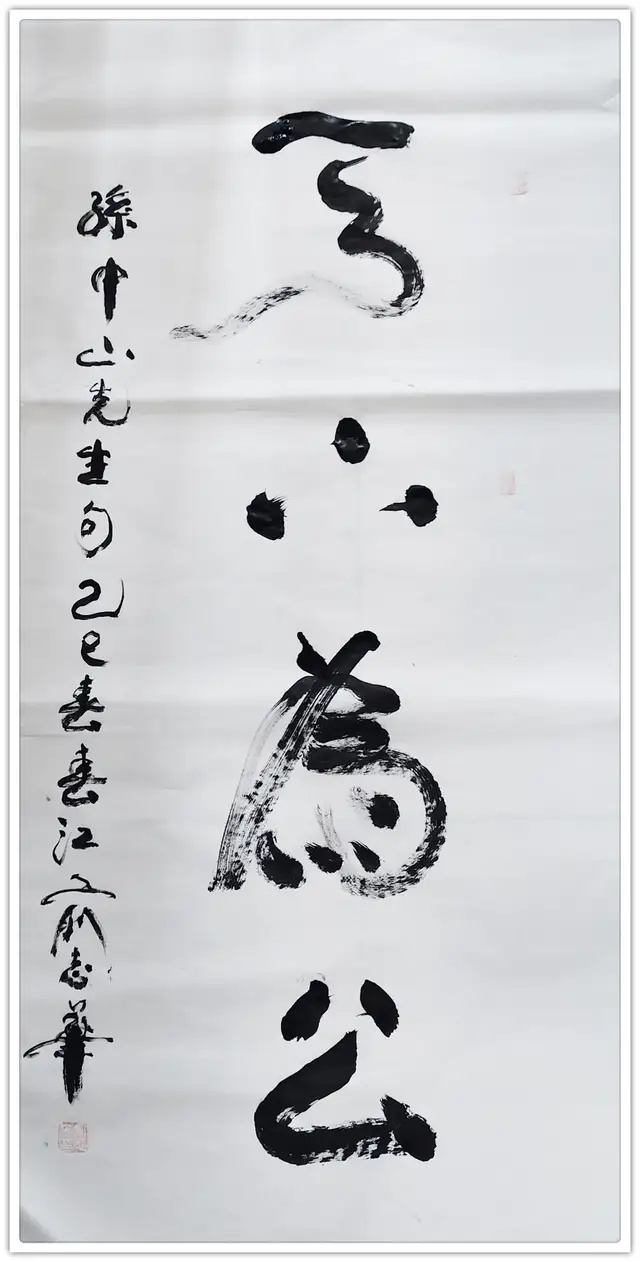 天下為公
孫中山先生句乙巳春春江俞志華